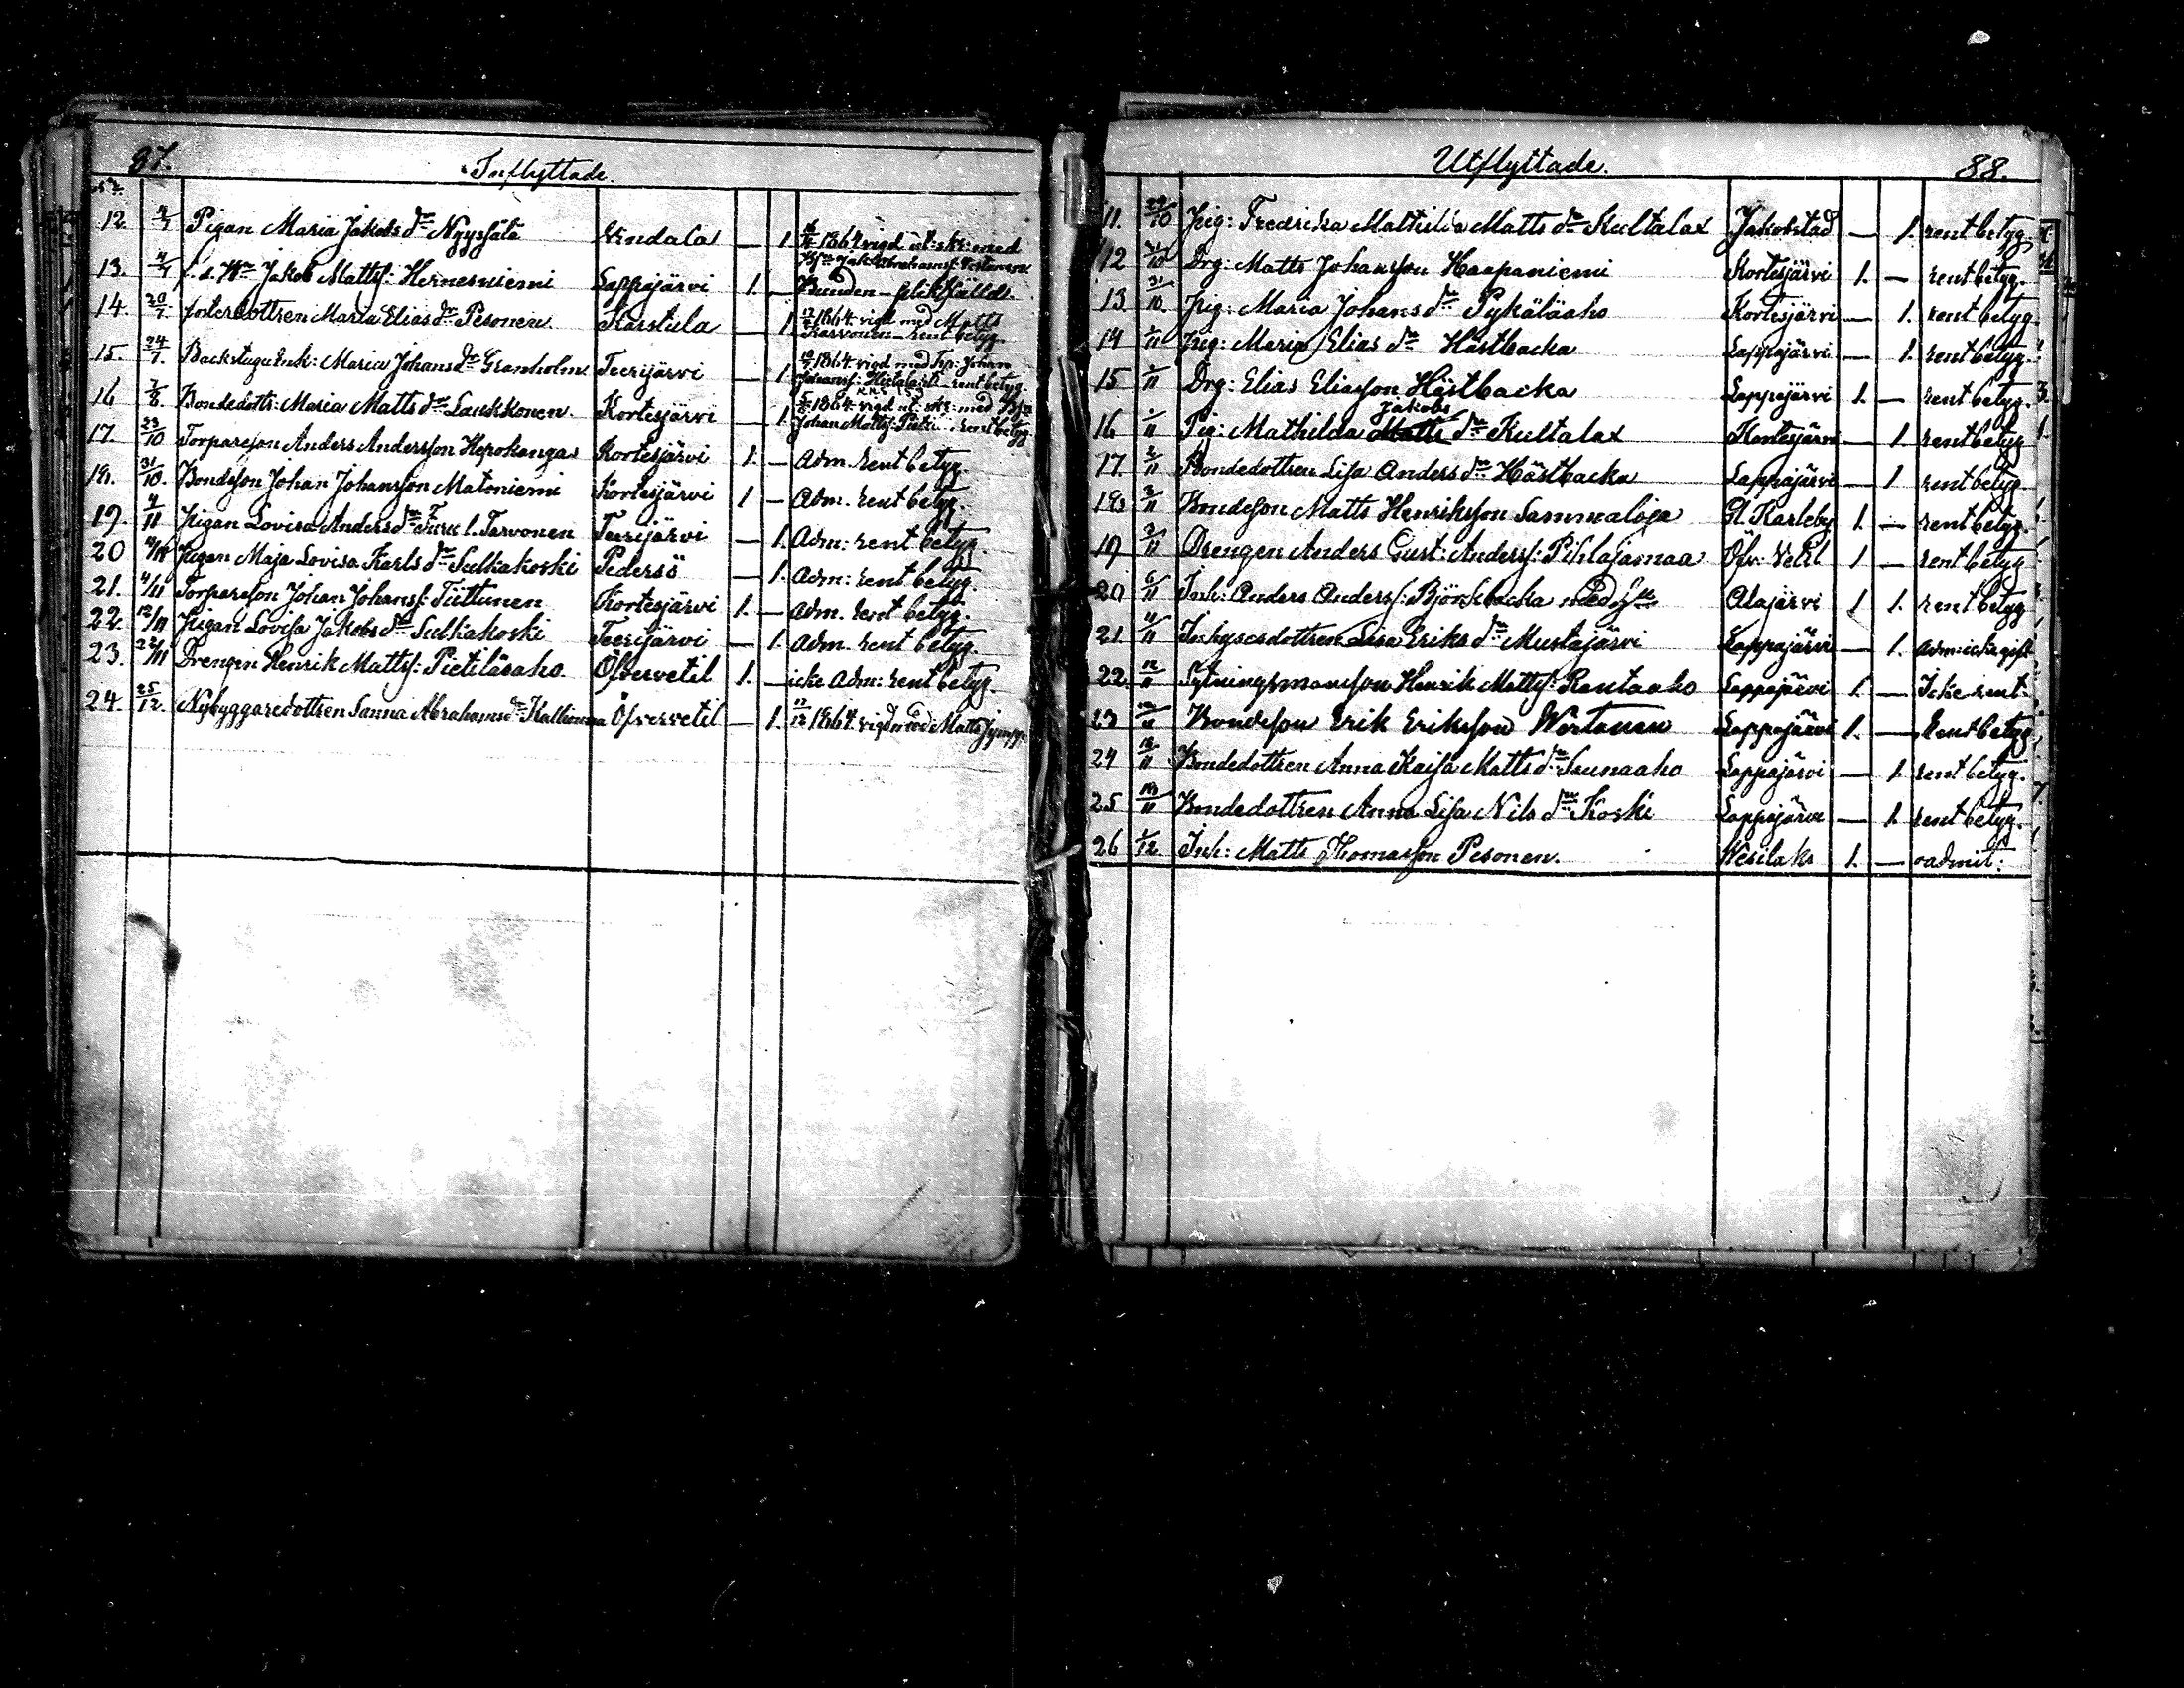 87. Inflyttade.
No
12. 4/7 Pigan Maria Jakobs dr Nyyssälä Windala — 1 1864 vigd med
13. 4/7 f.d. Jakob Mattsf: Hernesniemi Lappajärvi 1. — Bunden
14. 20/7 fosterdottren Maria Elias dr Pesonen Karstula — 1 1864 vigd med Matts
Karvonen – rent betyg.
15. 24/7. Backstugu Enk: Maria Johans dr Granholm Teerijärvi — 1 1864 vigd med Johan
Johansf: rent betyg.
16 7/8 Bondedottr: Maria Matts dr Laukkonen Kortesjärvi — 1 1864 vigd med
Johan Mattsf: rent betyg
17. 23/10 Torpareson Anders Andersson Hepokangas Kortesjärvi 1. — Adm. rent betyg.
18. 31/10. Bondeson Johan Johansson Matoniemi Kortesjärvi 1 — Adm. rent betyg.
19. 4/11 Pigan Lovisa Anders dr Turu l. Tarvonen Teerijärvi — 1. Adm: rent betyg.
20 4/11 Pigan Maja Lovisa Karls dr Sulkakoski Pedersö — 1. Adm: rent betyg.
21. 4/11 Torpareson Johan Johansf: Tiittunen Kortesjärvi 1. — Adm. rent betyg.
22. 12/11 Pigan Lovisa Jakobs dr Sulkakoski Teerijärvi — 1. Adm. rent betyg.
23. 22/11 Drengen Henrik Mattsf: Pietiläsaho. Öfvervetil 1. — icke Adm: rent betyg.
24. 25/12. Nybyggaredottren Sanna Abrahams dr Öfvervetil — 1. 1864 vigd med Matts
Utflyttade. 88.
11. 29/10 Pig: Fredrika Mathilda Matts dr Kultalax Jakobstad — 1. rent betyg.
12 31/10 Drg: Matts Johansson Haapaniemi Kortesjärvi 1. — rent betyg.
13 31/10. Pig: Maria Johans dr Pykäläaho Kortesjärvi — 1. rent betyg.
14 1/11 Pig: Maria Elias dr Hästbacka Lappajärvi — 1. rent betyg.
15 1/11 Drg: Elias Eliasson Hästbacka Lappajärvi 1. — rent betyg.
Jakobs
16 1/11 Pig: Mathilda Matts dr Kultalax Kortesjärvi — 1 rent betyg
17. 2/11 Bondedottren Lisa Anders dr Hästbacka Lappajärvi — 1 rent betyg.
18 3/11 Bondeson Matts Henriksson Sammaloja Gl. Karleby 1. — rent betyg.
19 3/11 Drengen Anders Gust: Andersf: Pihlajamaa Öfv: Vetil 1 — rent betyg
20 6/11 Inh: Anders Andersf: Björkbacka med Alajärvi 1 1. rent betyg
21 11/11 Inhysesdottren Lisa Eriks dr Mustajärvi Lappajärvi — 1. Adm: icke gift
22. 12/11 Henrik Mattsf: Rantaaho Lappajärvi 1. — Icke rent.
23 12/11 Bondeson Erik Eriksson Wirtanen Lappajärvi 1. — Rent betyg.
24 18/11 Bondedottren Anna Kaisa Matts dr Saunaaho Lappajärvi — 1. rent betyg.
25 18/11 Bondedottren Anna Lisa Nils dr Koski Lappajärvi — 1. rent betyg.
26 1/12. Inh: Matts Thomasson Pesonen. Wesilaks 1. — oadmit: